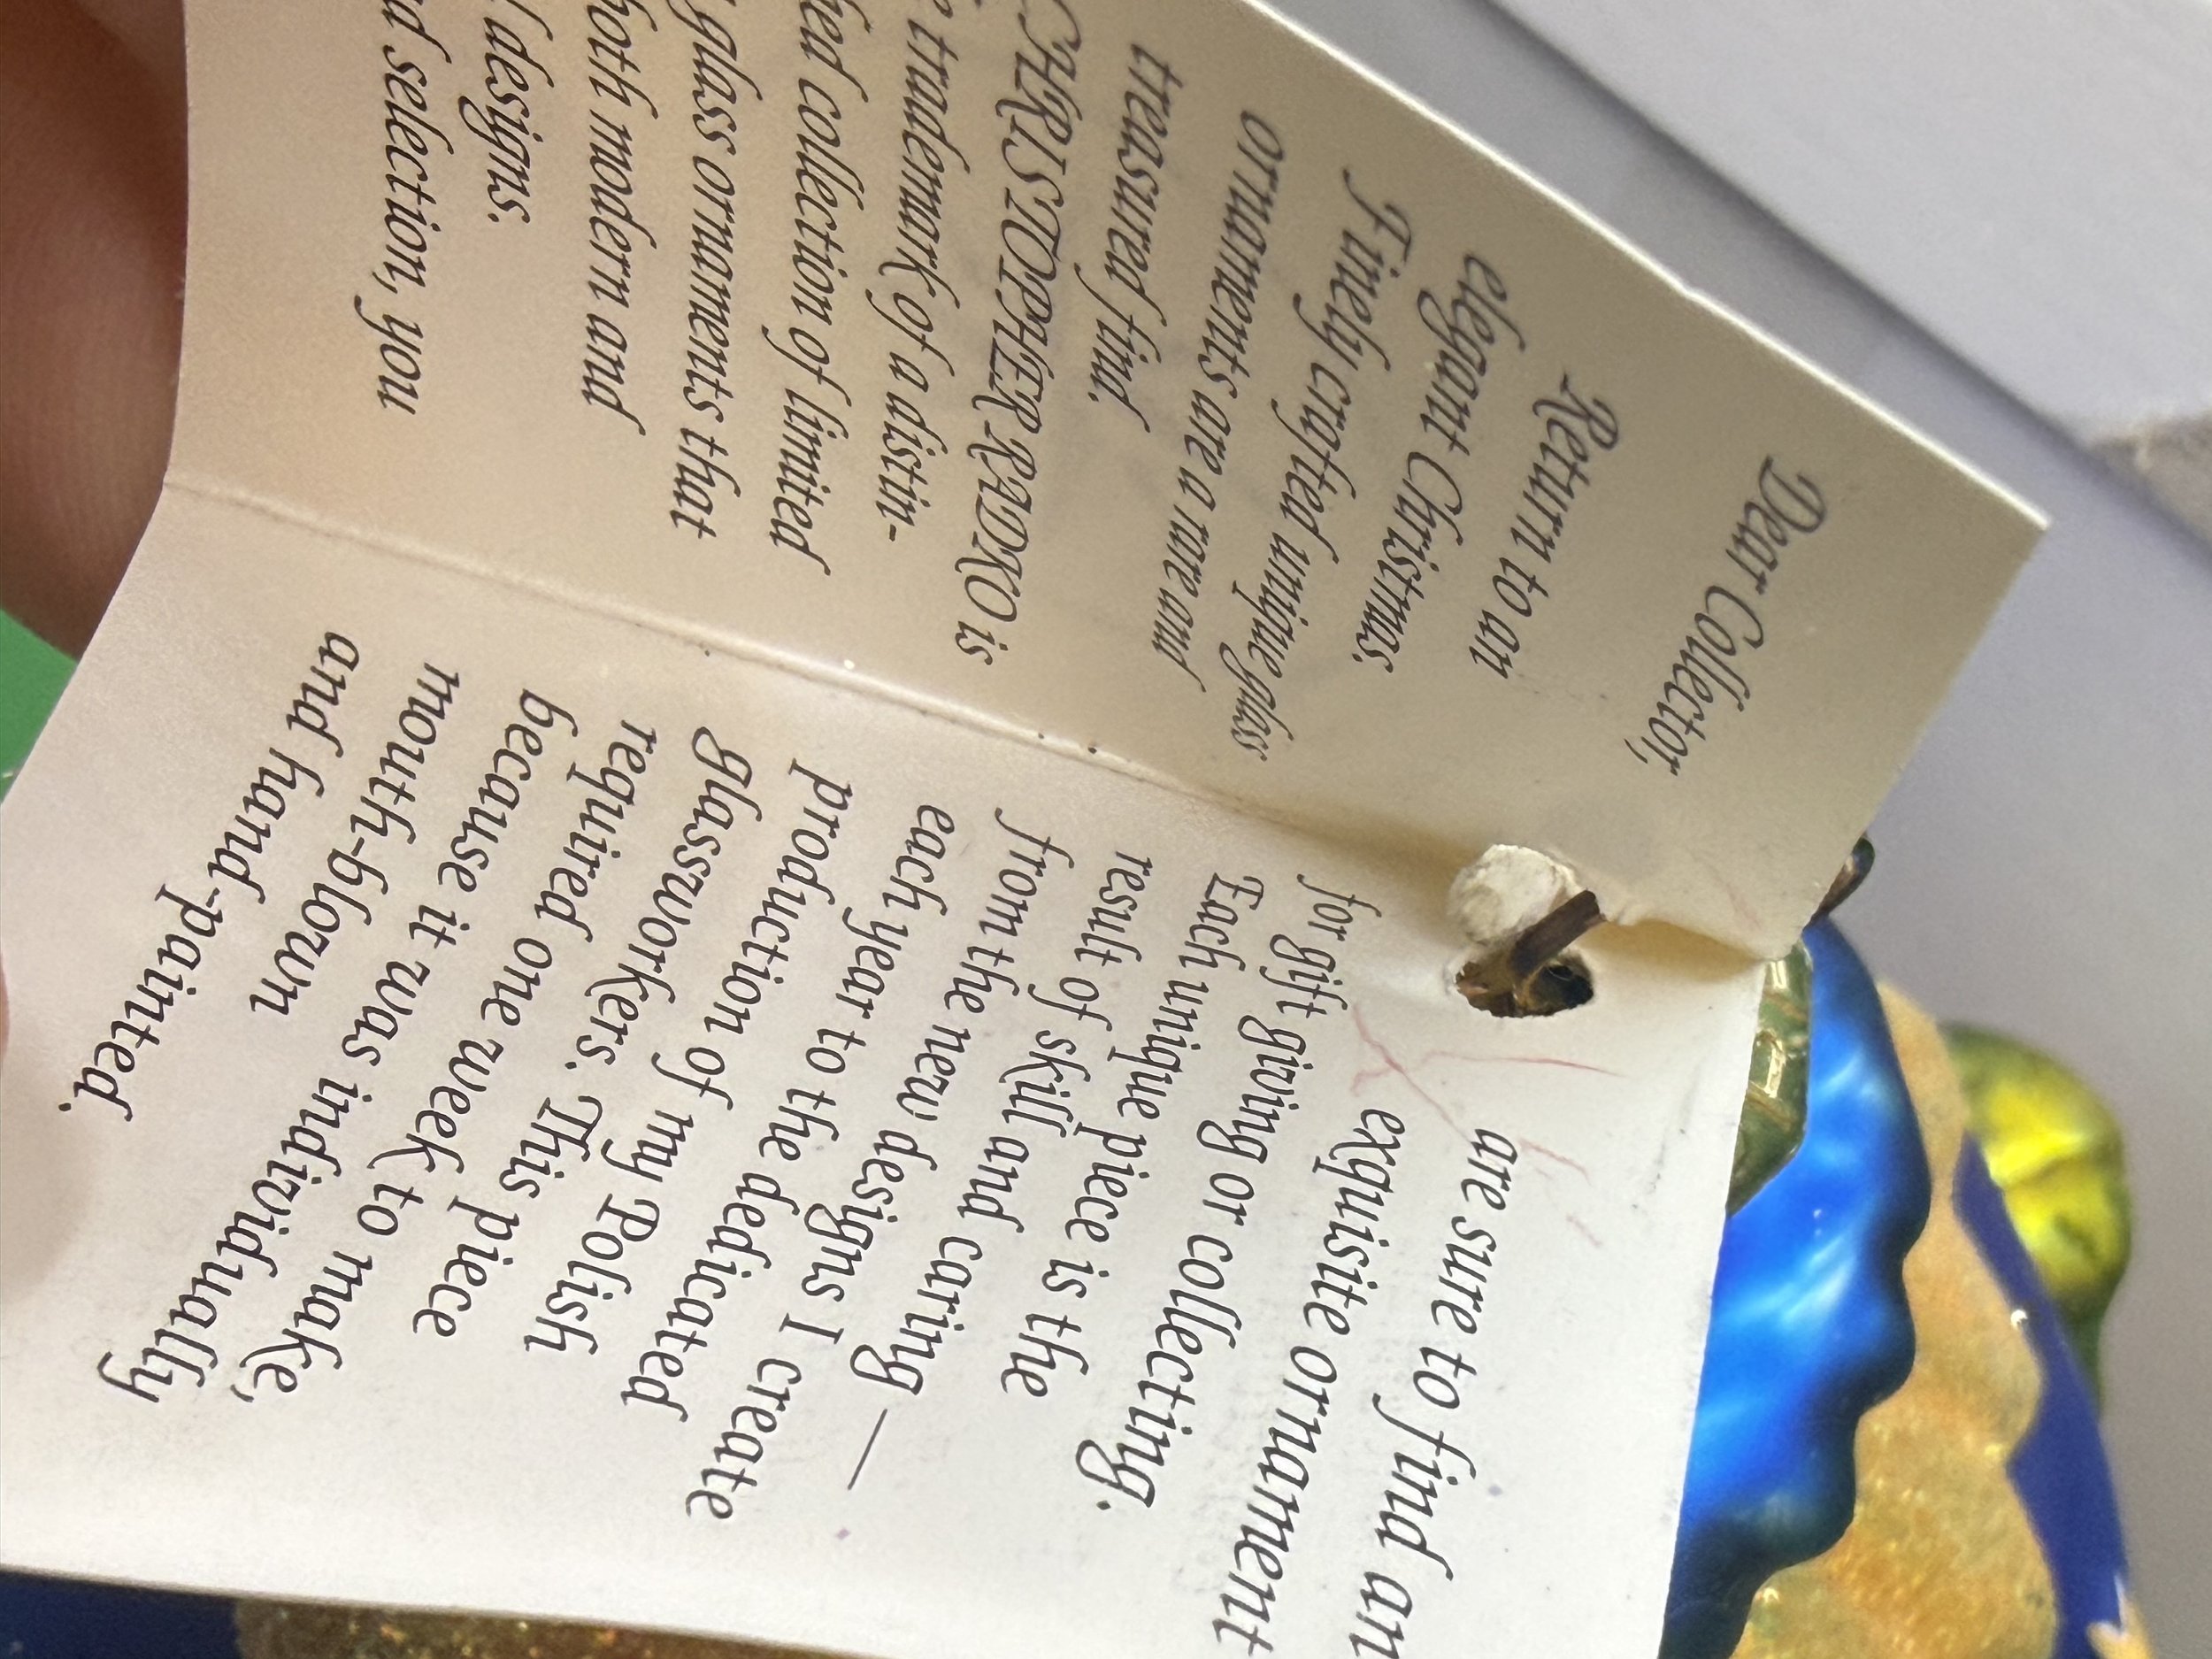 Dear Collector,
Return to an
elegant Christmas.
Finely crafted unique glass
ornaments are a rare and
treasured find.
CHRISTOPHER RADKO is
trademark of a distin-
collection of limited
glass ornaments that
both modern and
designs.
selection, you
are sure to find an
exquisite ornament
for gift giving or collecting.
Each unique piece is the
result of skill and caring —
from the new designs I create
each year to the dedicated
production of my Polish
glassworkers. This piece
required one week to make,
because it was individually
mouth-blown
and hand-painted.